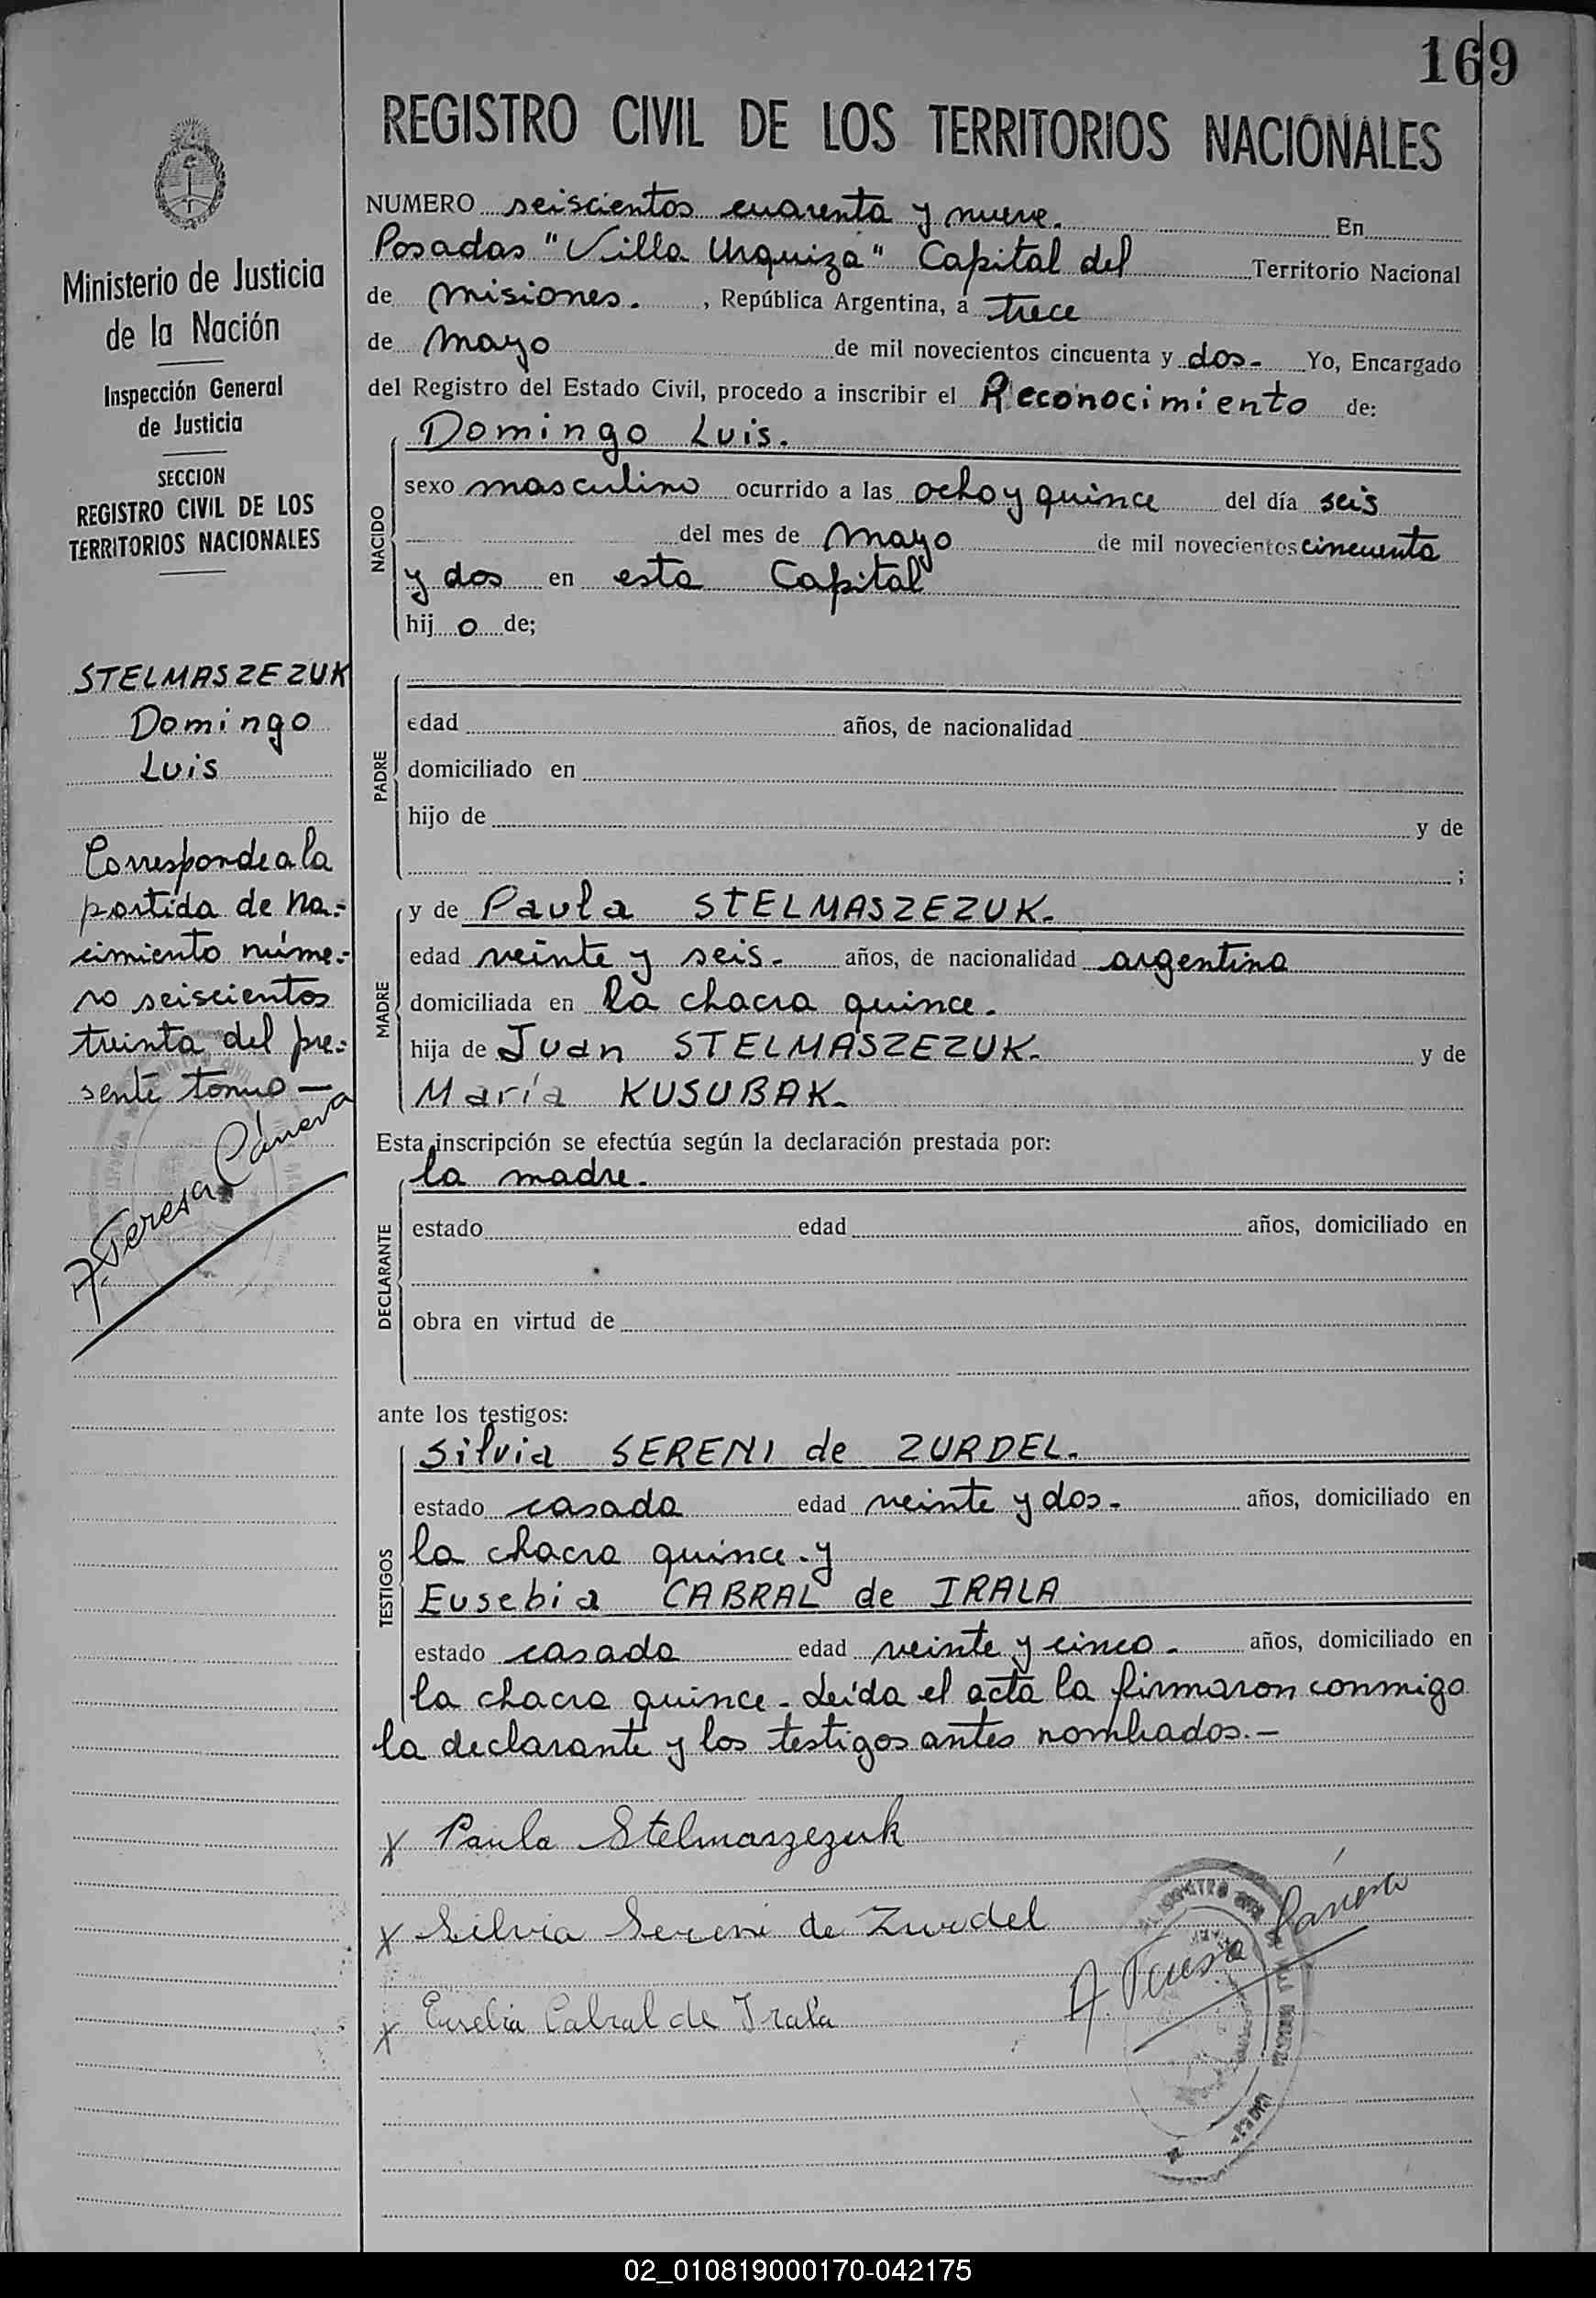 169
REGISTRO CIVIL DE LOS TERRITORIOS NACIONALES
Ministerio de Justicia
de la Nación
Inspección General
de Justicia
SECCION
REGISTRO CIVIL DE LOS
TERRITORIOS NACIONALES
STELMASZEZUK
Domingo
Luis
Corresponde a la
partida de na.-
cimiento núme.-
ro seiscientos
treinta del pre.-
sente tomo —
A. Teresa Cáneva
NUMERO seiscientos cuarenta y nueve. En
Posadas "Villa Urquiza" Capital del Territorio Nacional
de misiones. , República Argentina, a trece
de mayo de mil novecientos cincuenta y dos- Yo, Encargado
del Registro del Estado Civil, procedo a inscribir el Reconocimiento de:
NACIDO
Domingo Luis.
sexo masculino ocurrido a las ocho y quince del día seis
del mes de mayo de mil novecientos cincuenta
y dos en esta Capital
hij o de;
PADRE
edad años, de nacionalidad
domiciliado en
hijo de y de
;
MADRE
y de Paula STELMASZEZUK.
edad veinte y seis- años, de nacionalidad argentina
domiciliada en la chacra quince.
hija de Juan STELMASZEZUK. y de
María KUSUBAK.
Esta inscripción se efectúa según la declaración prestada por:
DECLARANTE
la madre.
estado edad años, domiciliado en
obra en virtud de
ante los testigos:
TESTIGOS
Silvia SERENI de ZURDEL.
estado casada edad veinte y dos- años, domiciliado en
la chacra quince.y
Eusebia CABRAL de IRALA
estado casada edad veinte y cinco- años, domiciliado en
la chacra quince- Leída el acta la firmaron conmigo
la declarante y los testigos antes nombrados.-
x Paula Stelmaszezuk
x Silvia Sereni de Zurdel
x Eusebia Cabral de Irala
A. Teresa Cáneva
02_010819000170-042175